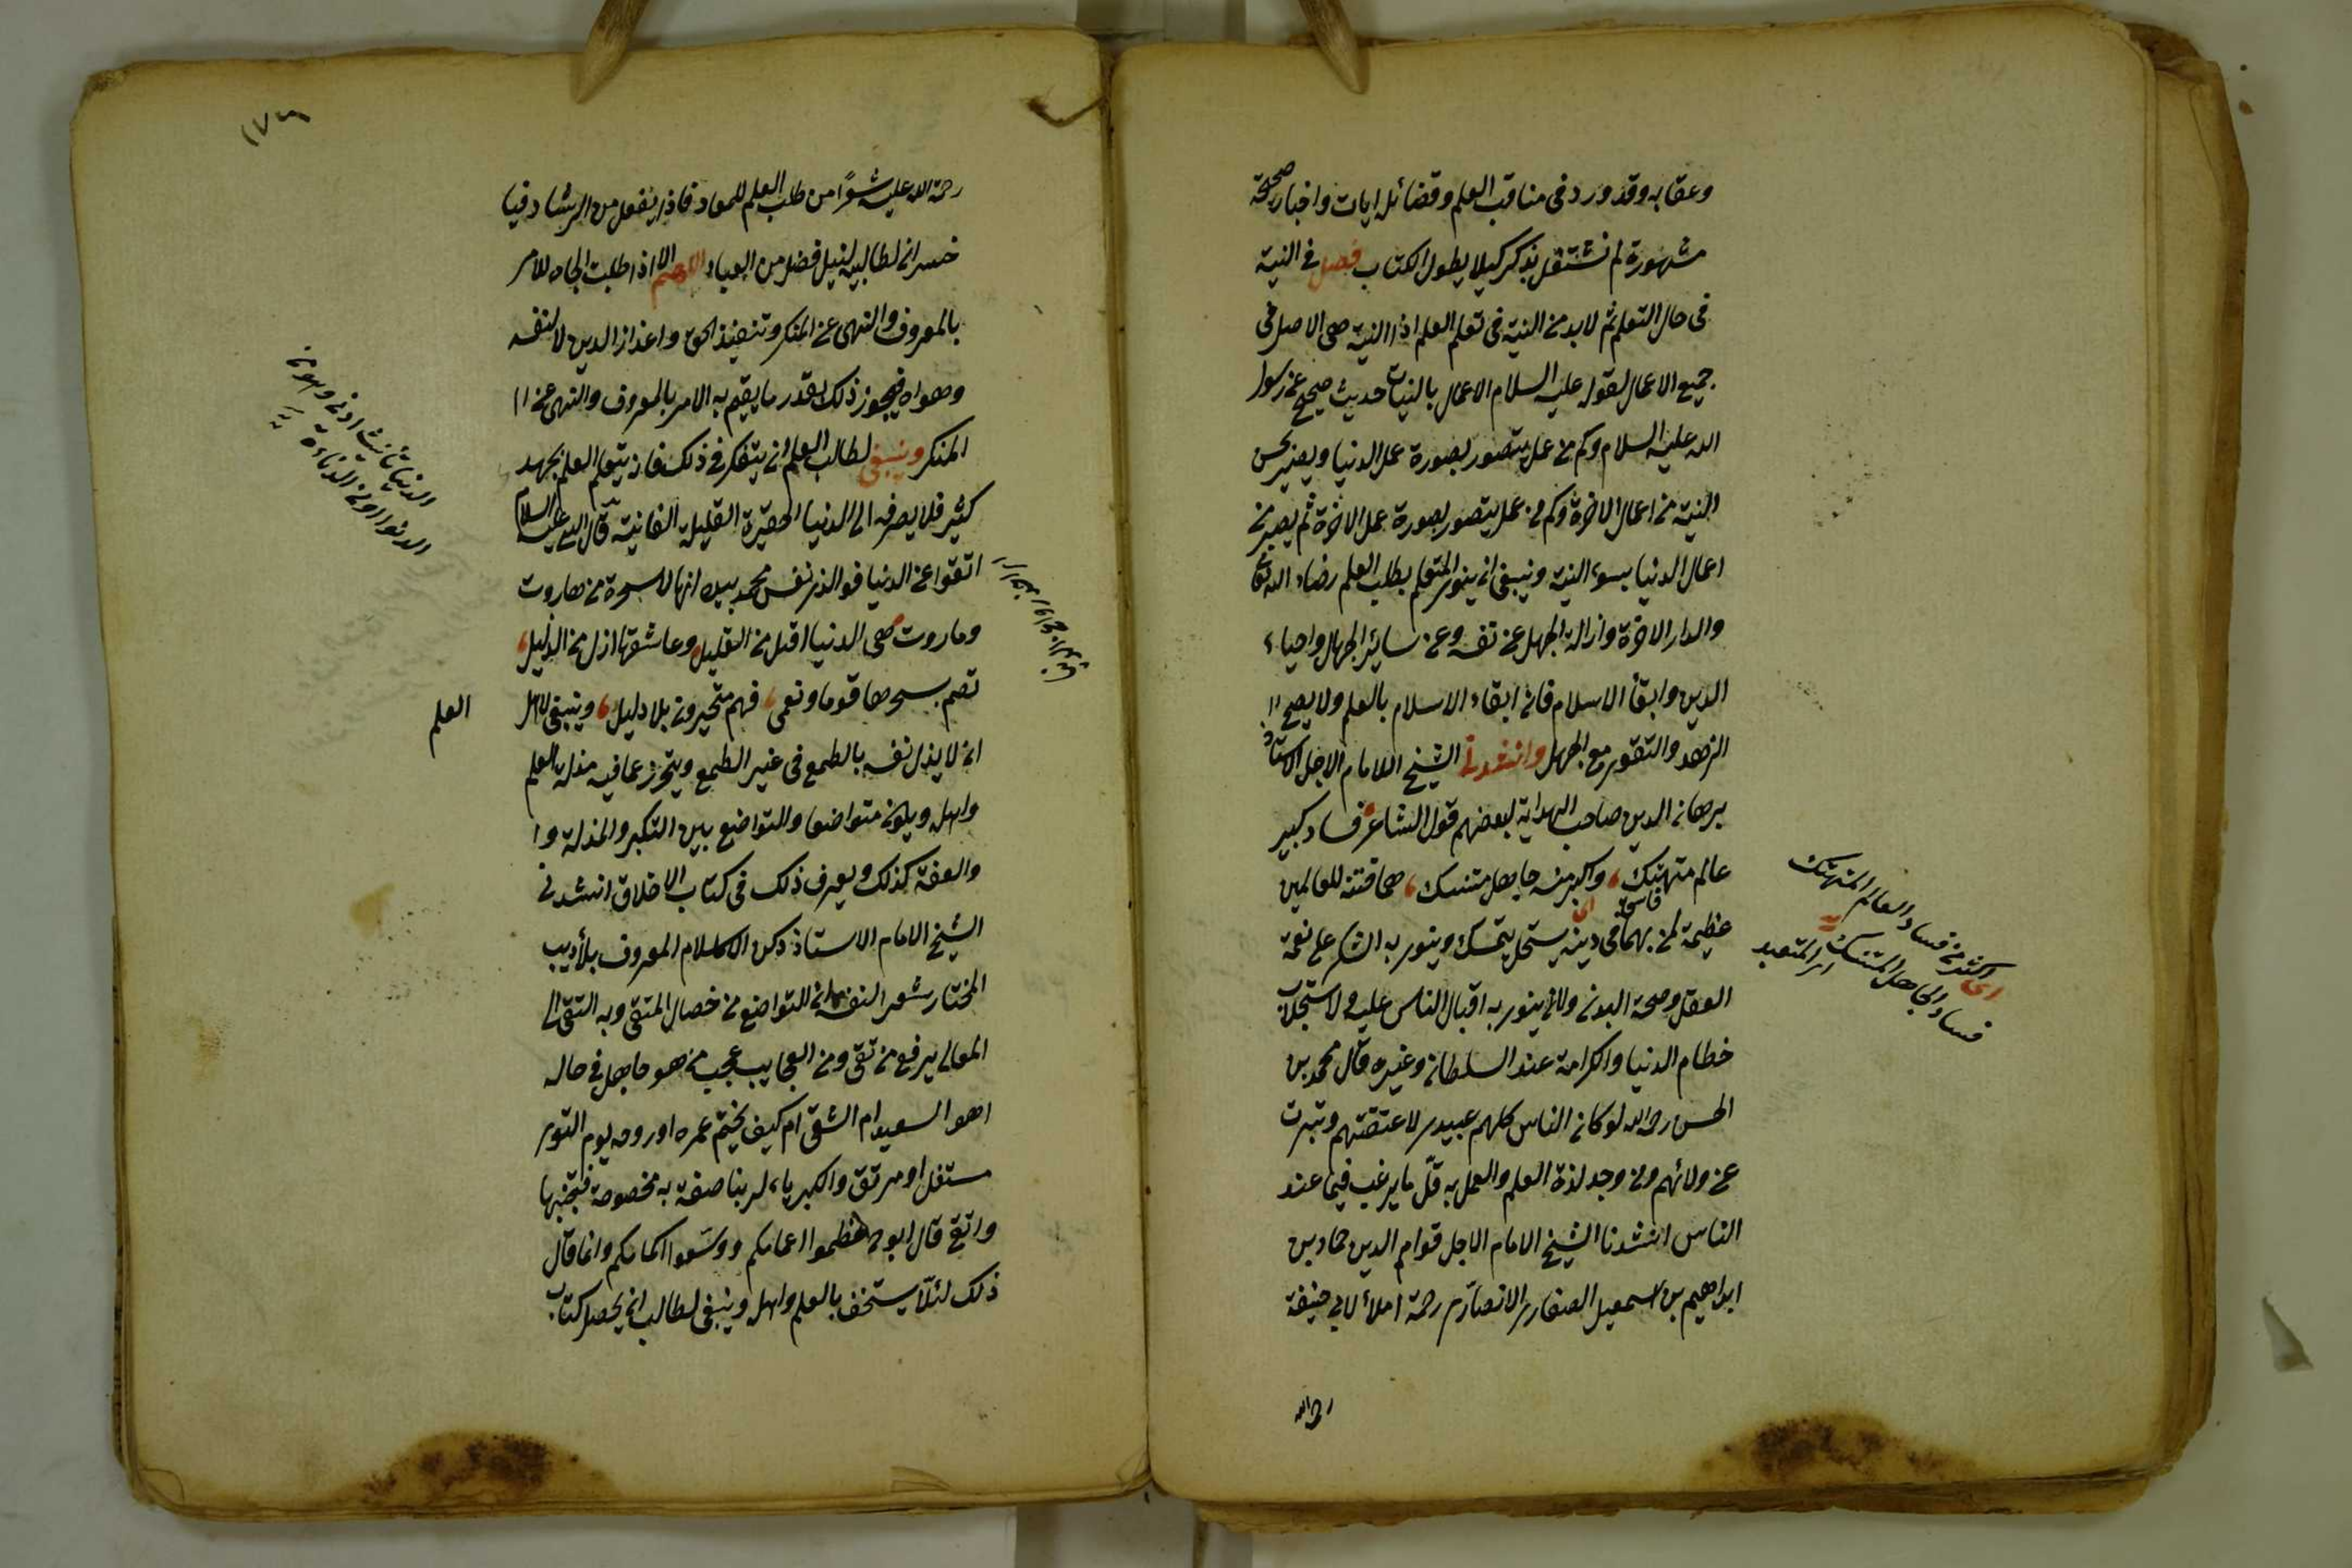 وعقابه وقد ورد فى مناقب العلم وفضائله ايات واخبار صحيحة
مشهورة لم نشتغل بذكر كيلا يطول الكتاب فصل فى النية
فى حال التعلم ثم لابد من النية فى تعلم العلم اذا النية هى الاصل فى
جميع الاعمال لقوله عليه السلام الاعمال بالنيات حديث صحيح عن رسول
الله عليه السلام وكم من عمل يتصور بصورة عمل الدنيا ويصير بحسن
النية من اعمال الاخرة وكم من عمل يتصور بصورة عمل الاخرة ثم يصير من
اعمال الدنيا بسوء النية وينبغى ان ينوى المتعلم بطلب العلم رضاء الله تعالى
والدار الاخرة وازالة الجهل عن نفسه وعن سائر الجهال واحياء
الدين وابقاء الاسلام فان ابقاء الاسلام بالعلم ولا يصح
الزهد والتقوى مع الجهل وانشدنى الشيخ الامام الاجل الاستاذ
برهان الدين صاحب الهداية لبعضهم قول الشاعر فساد كبير
عالم متهتك، واكبر منه جاهل متنسك، هما فتنة للعالمين
عظيمة لمن بهما فى دينه يتمسك وينوى به الشكر على نعمة
العقل وصحة البدن ولا ينوى به اقبال الناس عليه ولا استجلاب
خطام الدنيا والكرامة عند السلطان وغيره قال محمد بن
الحسن رحه الله لو كان الناس كلهم عبيدى لاعتقتهم وتبرت
عن ولائهم ومن وجد لذة العلم والعمل به قلّ ما يرغب فيما عند
الناس انشدنا الشيخ الامام الاجل قوام الدين حماد بن
ابراهيم بن اسمعيل الصفارى الانصارى رحمة املاء لابى حنيفة
رحه الله
اى اكثر من فساد العالم المتهتك
فساد الجاهل المتنسك اى المتعبد
رحمة الله عليه شعرًا من طلب العلم للمعاد فاز بفضل من الرشاد فيا
خسران لطالبيه لنيل فضل من العباد اللهم الا اذا طلب الجاه للامر
بالمعروف والنهى عن المنكر وتنفيذ الحق واعزاز الدين لا لنفسه
وهواه فيجوز ذلك بقدر ما يقيم به الامر بالمعروف والنهى عن ا
المنكر وينبغى لطالب العلم ان يتفكر فى ذلك فانه يتعلم العلم بجهد
كثير فلا يصرفه الى الدنيا الحقيرة القليلة الفانية قال النبى عليه السلام
اتقوا عن الدنيا فوالذى نفس محمد بيده انها لاسحرة من هاروت
وماروت هى الدنيا اقل من القليل، وعاشقها ازل من الذليل،
تصم بسحرها قوما وتعمى، فهم متحيرون بلا دليل، وينبغى لاهل
العلم
ان لا يذل نفسه بالطمع فى غير الطمع ويتحرز عما فيه مذلة العلم
واهله ويكون متواضعا والتواضع بين التكبر والمذلة و ا
والعفة كذلك ويعرف ذلك فى كتاب الاخلاق انشدنى
الشيخ الامام الاستاذ ركن الاسلام المعروف بلأديب
المختار شعر النفسه ان التواضع من خصال المتقى وبه التقى الى
المعالى يرفع من تقى ومن العجايب عجب من هو جاهل فى حاله
اهو السعيد ام الشقى ام كيف يختم عمره او روحه يوم التوى
مستفل او مرتق والكبرياء لربنا صفة به مخصوصة فتجنبها
واتق قال ابو ح عظموا اعمامكم ووسّعوا اكمامكم وانما قال
ذلك لئلّا يستخف بالعلم واهله وينبغى لطالب ان يحصل كتاب